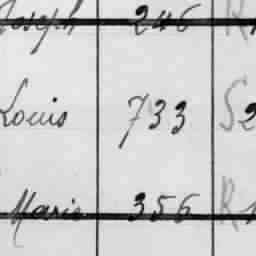 Joseph 246 R
Louis 733 S2
Marie 356 R